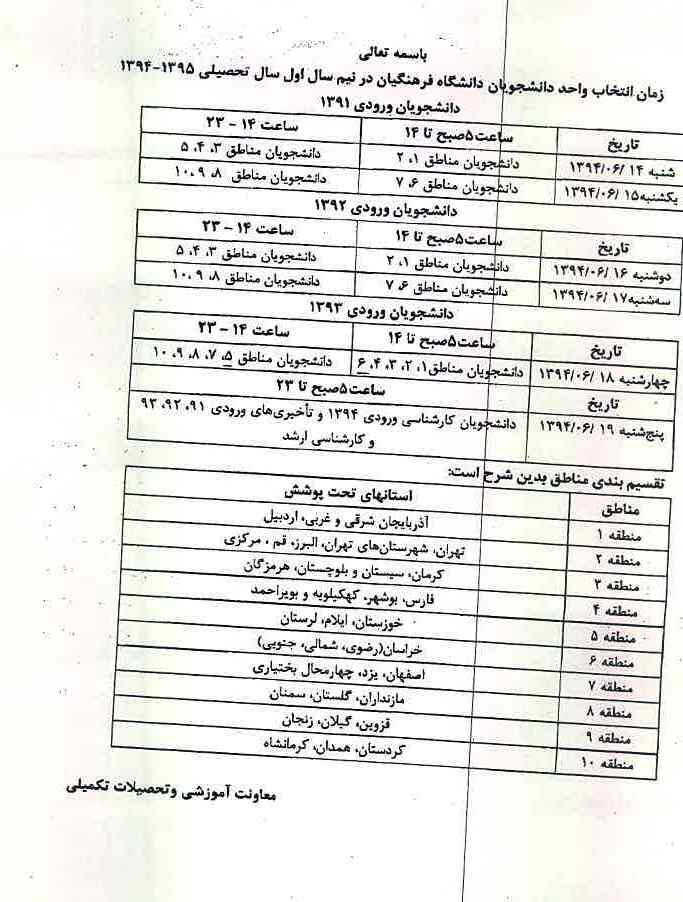 باسمه تعالی
زمان انتخاب واحد دانشجویان دانشگاه فرهنگیان در نیم سال اول سال تحصیلی ۱۳۹۵-۱۳۹۴
دانشجویان ورودی ۱۳۹۱
تاریخ ساعت۵صبح تا ۱۴ ساعت ۱۴ - ۲۳
شنبه ۱۴ /۱۳۹۴/۰۶ دانشجویان مناطق ۱، ۲ دانشجویان مناطق ۳، ۴، ۵
یکشنبه۱۵ /۱۳۹۴/۰۶ دانشجویان مناطق ۶، ۷ دانشجویان مناطق ۸، ۹، ۱۰
دانشجویان ورودی ۱۳۹۲
تاریخ ساعت۵صبح تا ۱۴ ساعت ۱۴ - ۲۳
دوشنبه ۱۶ /۱۳۹۴/۰۶ دانشجویان مناطق ۱، ۲ دانشجویان مناطق ۳، ۴، ۵
سه‌شنبه۱۷ /۱۳۹۴/۰۶ دانشجویان مناطق ۶، ۷ دانشجویان مناطق ۸، ۹، ۱۰
دانشجویان ورودی ۱۳۹۳
تاریخ ساعت۵صبح تا ۱۴ ساعت ۱۴ - ۲۳
چهارشنبه ۱۸ /۱۳۹۴/۰۶ دانشجویان مناطق۱، ۲، ۳، ۴، ۶ دانشجویان مناطق ۵، ۷، ۸، ۹، ۱۰
تاریخ ساعت۵صبح تا ۲۳
پنج‌شنبه ۱۹ /۱۳۹۴/۰۶ دانشجویان کارشناسی ورودی ۱۳۹۴ و تأخیری‌های ورودی ۹۱، ۹۲، ۹۳
و کارشناسی ارشد
تقسیم بندی مناطق بدین شرح است:
مناطق استانهای تحت پوشش
منطقه ۱ آذربایجان شرقی و غربی، اردبیل
منطقه ۲ تهران، شهرستان‌های تهران، البرز، قم ، مرکزی
منطقه ۳ کرمان، سیستان و بلوچستان، هرمزگان
منطقه ۴ فارس، بوشهر، کهکیلویه و بویراحمد
منطقه ۵ خوزستان، ایلام، لرستان
منطقه ۶ خراسان(رضوی، شمالی، جنوبی)
منطقه ۷ اصفهان، یزد، چهارمحال بختیاری
منطقه ۸ مازنداران، گلستان، سمنان
منطقه ۹ قزوین، گیلان، زنجان
منطقه ۱۰ کردستان، همدان، کرمانشاه
معاونت آموزشی وتحصیلات تکمیلی